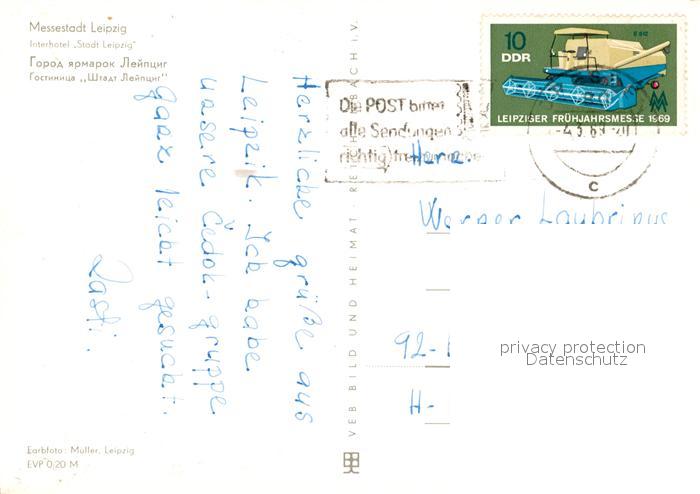 Messestadt Leipzig
Interhotel „Stadt Leipzig"
Город ярмарок Лейпциг
Гостиница „Штадт Лейпциг"
Herzliche grüße aus
Leipzik. Ich habe
unsere Čedok-gruppe
ganz leicht gesucht.
VEB BILD UND HEIMAT · REICHENBACH I. V.
Die POST bittet
alle Sendungen
richtig
10
DDR
E 512
LEIPZIGER FRÜHJAHRSMESSE 1969
C
Herrn
Werner Laubrinus
92-
H-
privacy protection
Datenschutz
Farbfoto: Müller, Leipzig
EVP 0,20 M